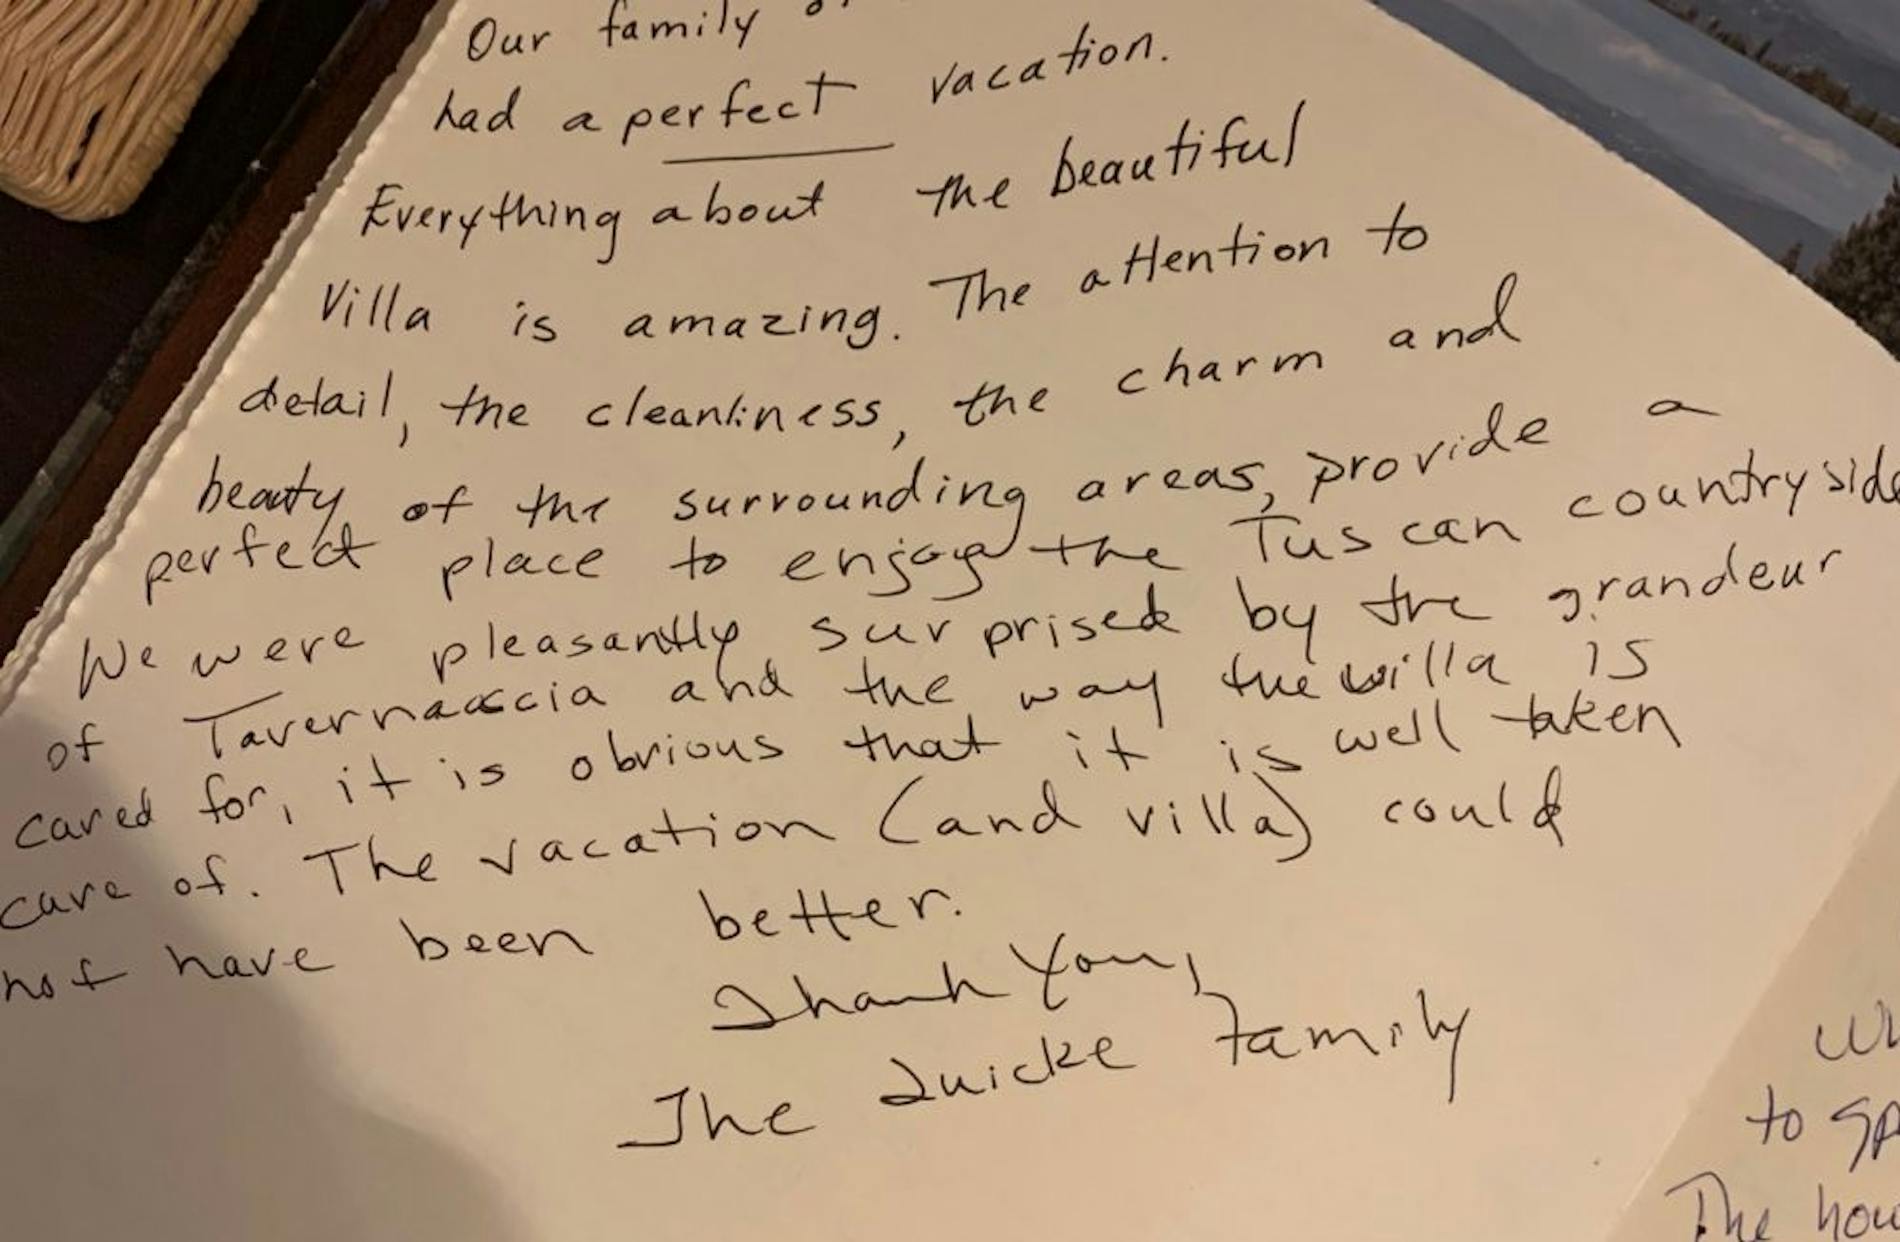 Our family
had a perfect vacation.
Everything about the beautiful
Villa is amazing. The attention to
detail, the cleanliness, the charm and
beauty of the surrounding areas, provide a
perfect place to enjoy the Tuscan countryside
We were pleasantly surprised by the grandeur
of Tavernaccia and the way the villa is
cared for, it is obvious that it is well taken
care of. The vacation (and villa) could
not have been better.
Thank You,
The Quicke Family
to
The